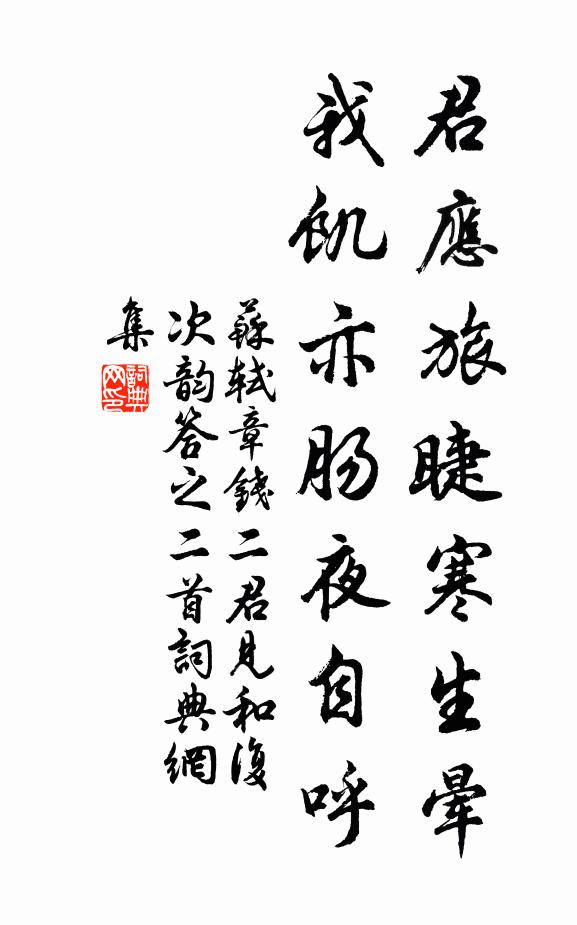 君應旅睫寒生暈
我飢亦腸夜自呼
蘇軾章錢二君見和復
次韵答之二首詞典網
集
詞典
网印